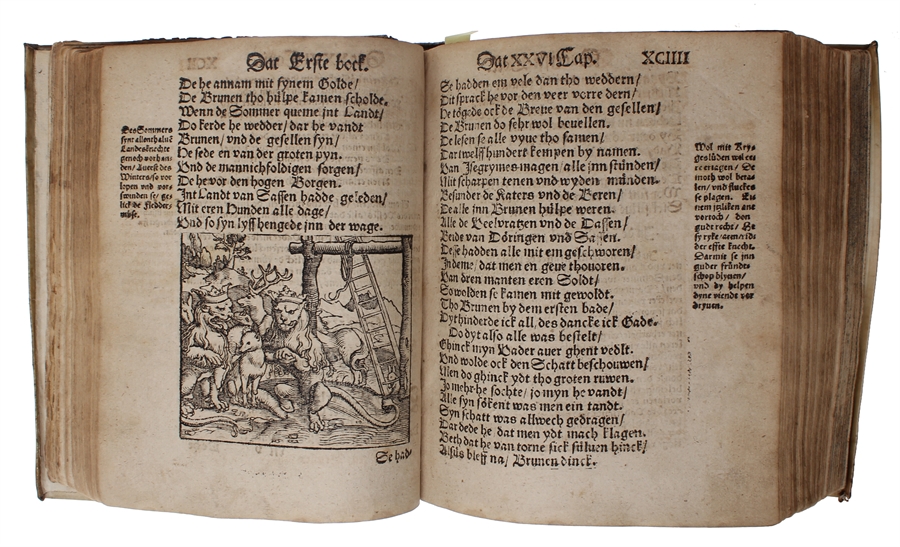 Dat Erste boek.
De he annam mit synem Golde/
De Brunen tho hülpe kamen scholde.
Wenn de Sommer queme jnt Landt/
Do kerde he wedder/ dar he vandt
Brunen/ vnd de gesellen syn/
De sede en van der groten pyn.
Vnd de mannichfoldigen sorgen/
De he vor den hogen Borgen.
Jnt Landt van Sassen hadde geleden/
Mit eren Hunden alle dage/
Vnd so syn lyff hengede jnn der wage.
Des Sommers
synt allenthaluē
Landesknechte
genoch vorhan-
den/ Auerst des
Winters/ so vor
lopen vnd vor-
swinden se/ ge-
lick de Fledder-
müse.
Se had-
Dat XXVI Cap. XCIIII
Se hadden em vele dan tho weddern/
Dit sprack he vor den veer vorredern/
He tögede ock de Breue van den gesellen/
De Brunen do seht wol beuellen.
De lesen se alle vyue tho samen/
Dar twelff hundert kempen by namen.
Van Jsegrymes magen/ alle jnn stünden/
Mit scharpen tenen vnd wyden münden.
Besunder de Katers vnd de Beren/
De alle jnn Brunen hülpe weren.
Alle de Veelvratzen vnd de Dassen/
Beide van Döringen vnd Sassen.
Desse hadden alle mit em geschworen/
Jn deme/ dat men en geue thouoren.
Van dren manten eren Soldt/
So wolden se kamen mit gewoldt.
Tho Brunen by dem ersten bade/
Dyt hinderde ick all, des dancke ick Gade.
Do dyt also alle was bestelt/
Ghinck myn Vader auer ghent veldt.
Vnd wolde ock den Schatt beschouwen/
Men do ghinck ydt tho groten ruwen.
Jo mehr he sochte/ jo myn he vandt/
Alle syn sökent was men ein tandt.
Syn schatt was allwech gedragen/
Dar dede he dat men ydt mach klagen.
Beth dat he van torne sick süluen hinck/
Alsüs bleff na/ Brunen dinck.
Wol mit Kry-
geslüden
De
moth wol beta-
len/ vnd fluckes
se plagen.
vortoch/ den
gude recht/ He
sy ryke/
der effte knecht.
Darmit se jnn
guder fründt-
schop blyuen/
vnd dy helpen
dyne viende vor
dryuen.